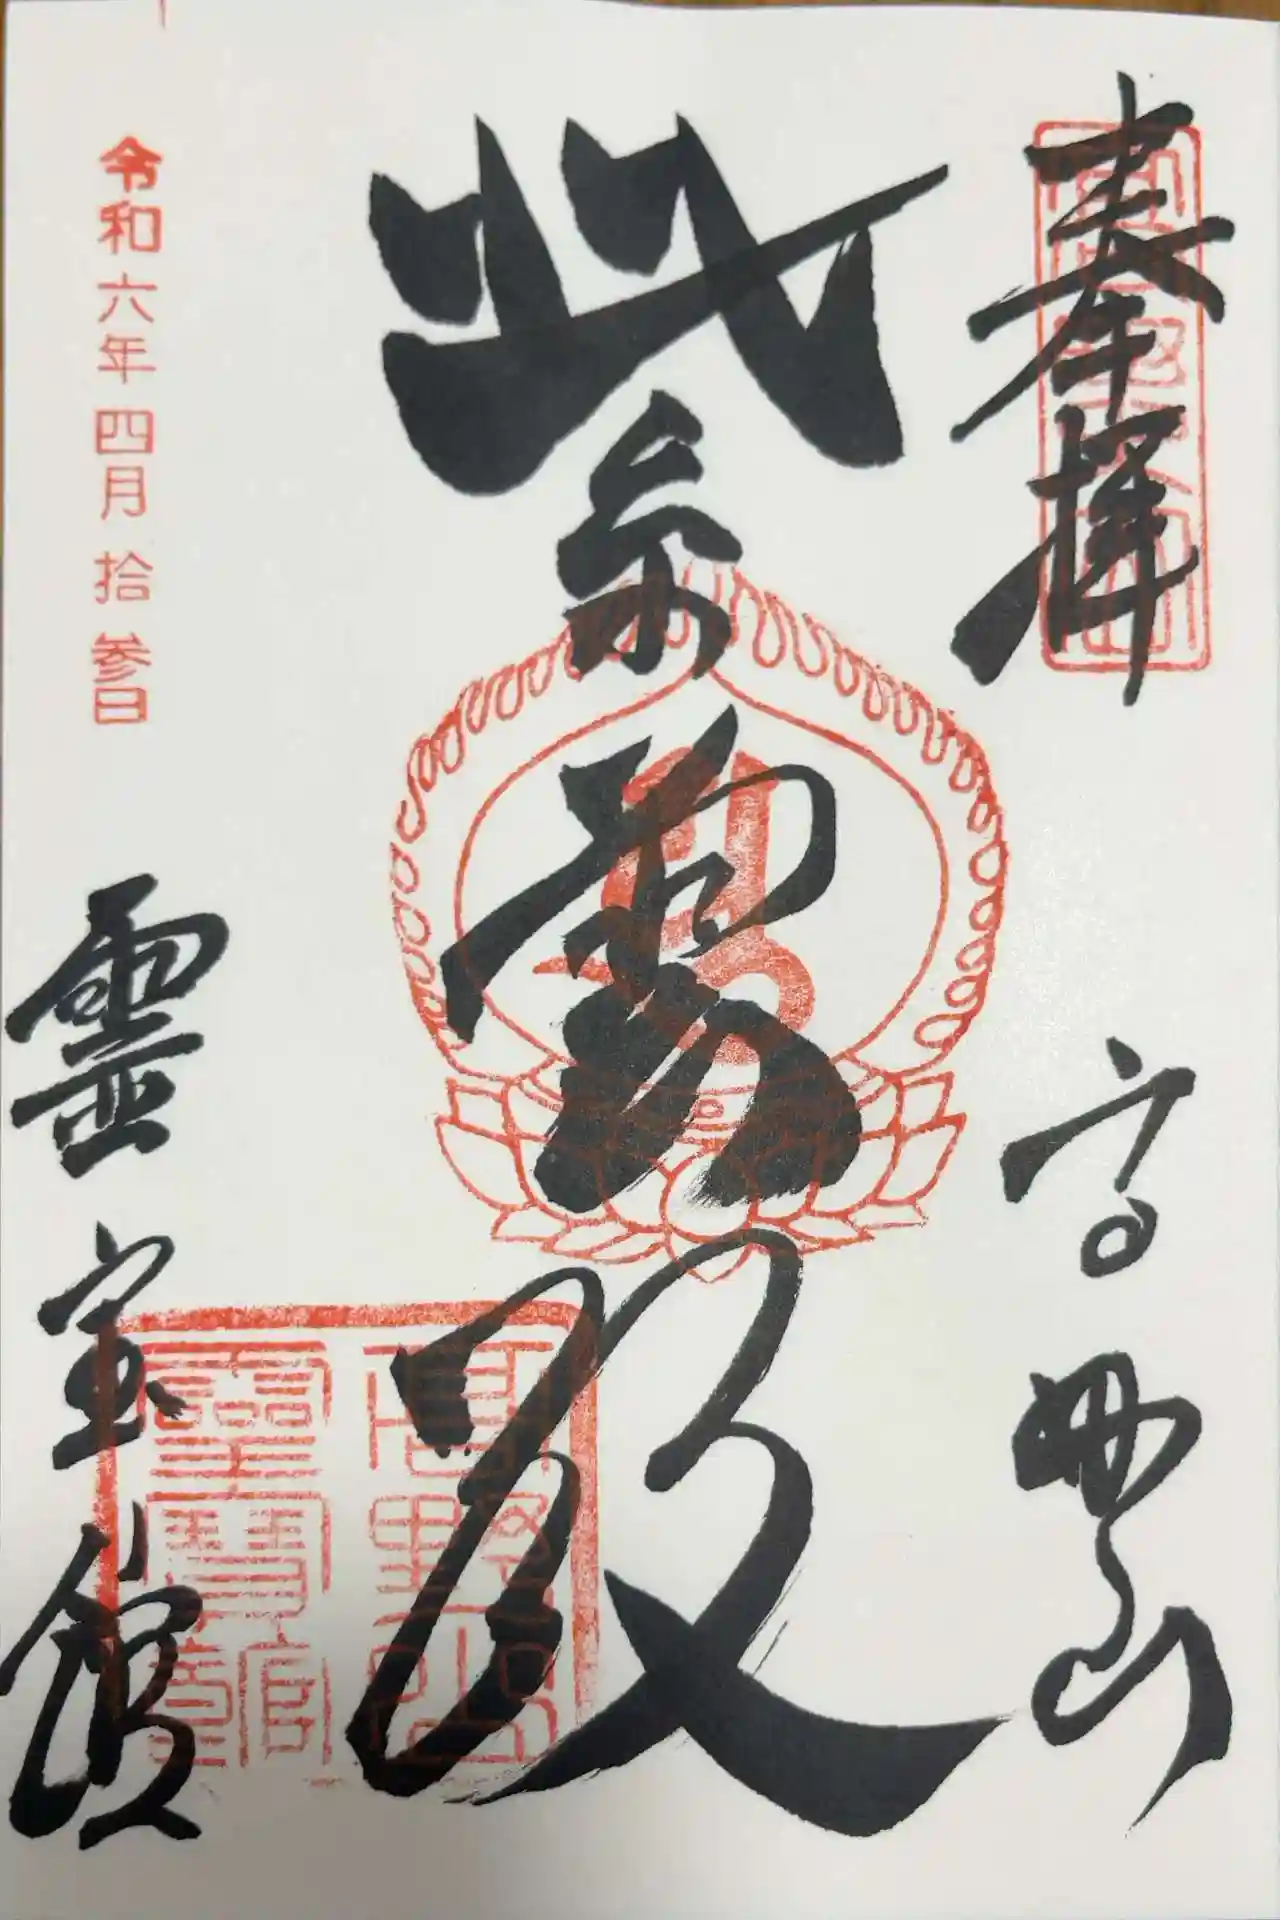 奉拝
高野山
紫雲殿
高野山
霊寶館
令和六年四月拾参日
霊宝館